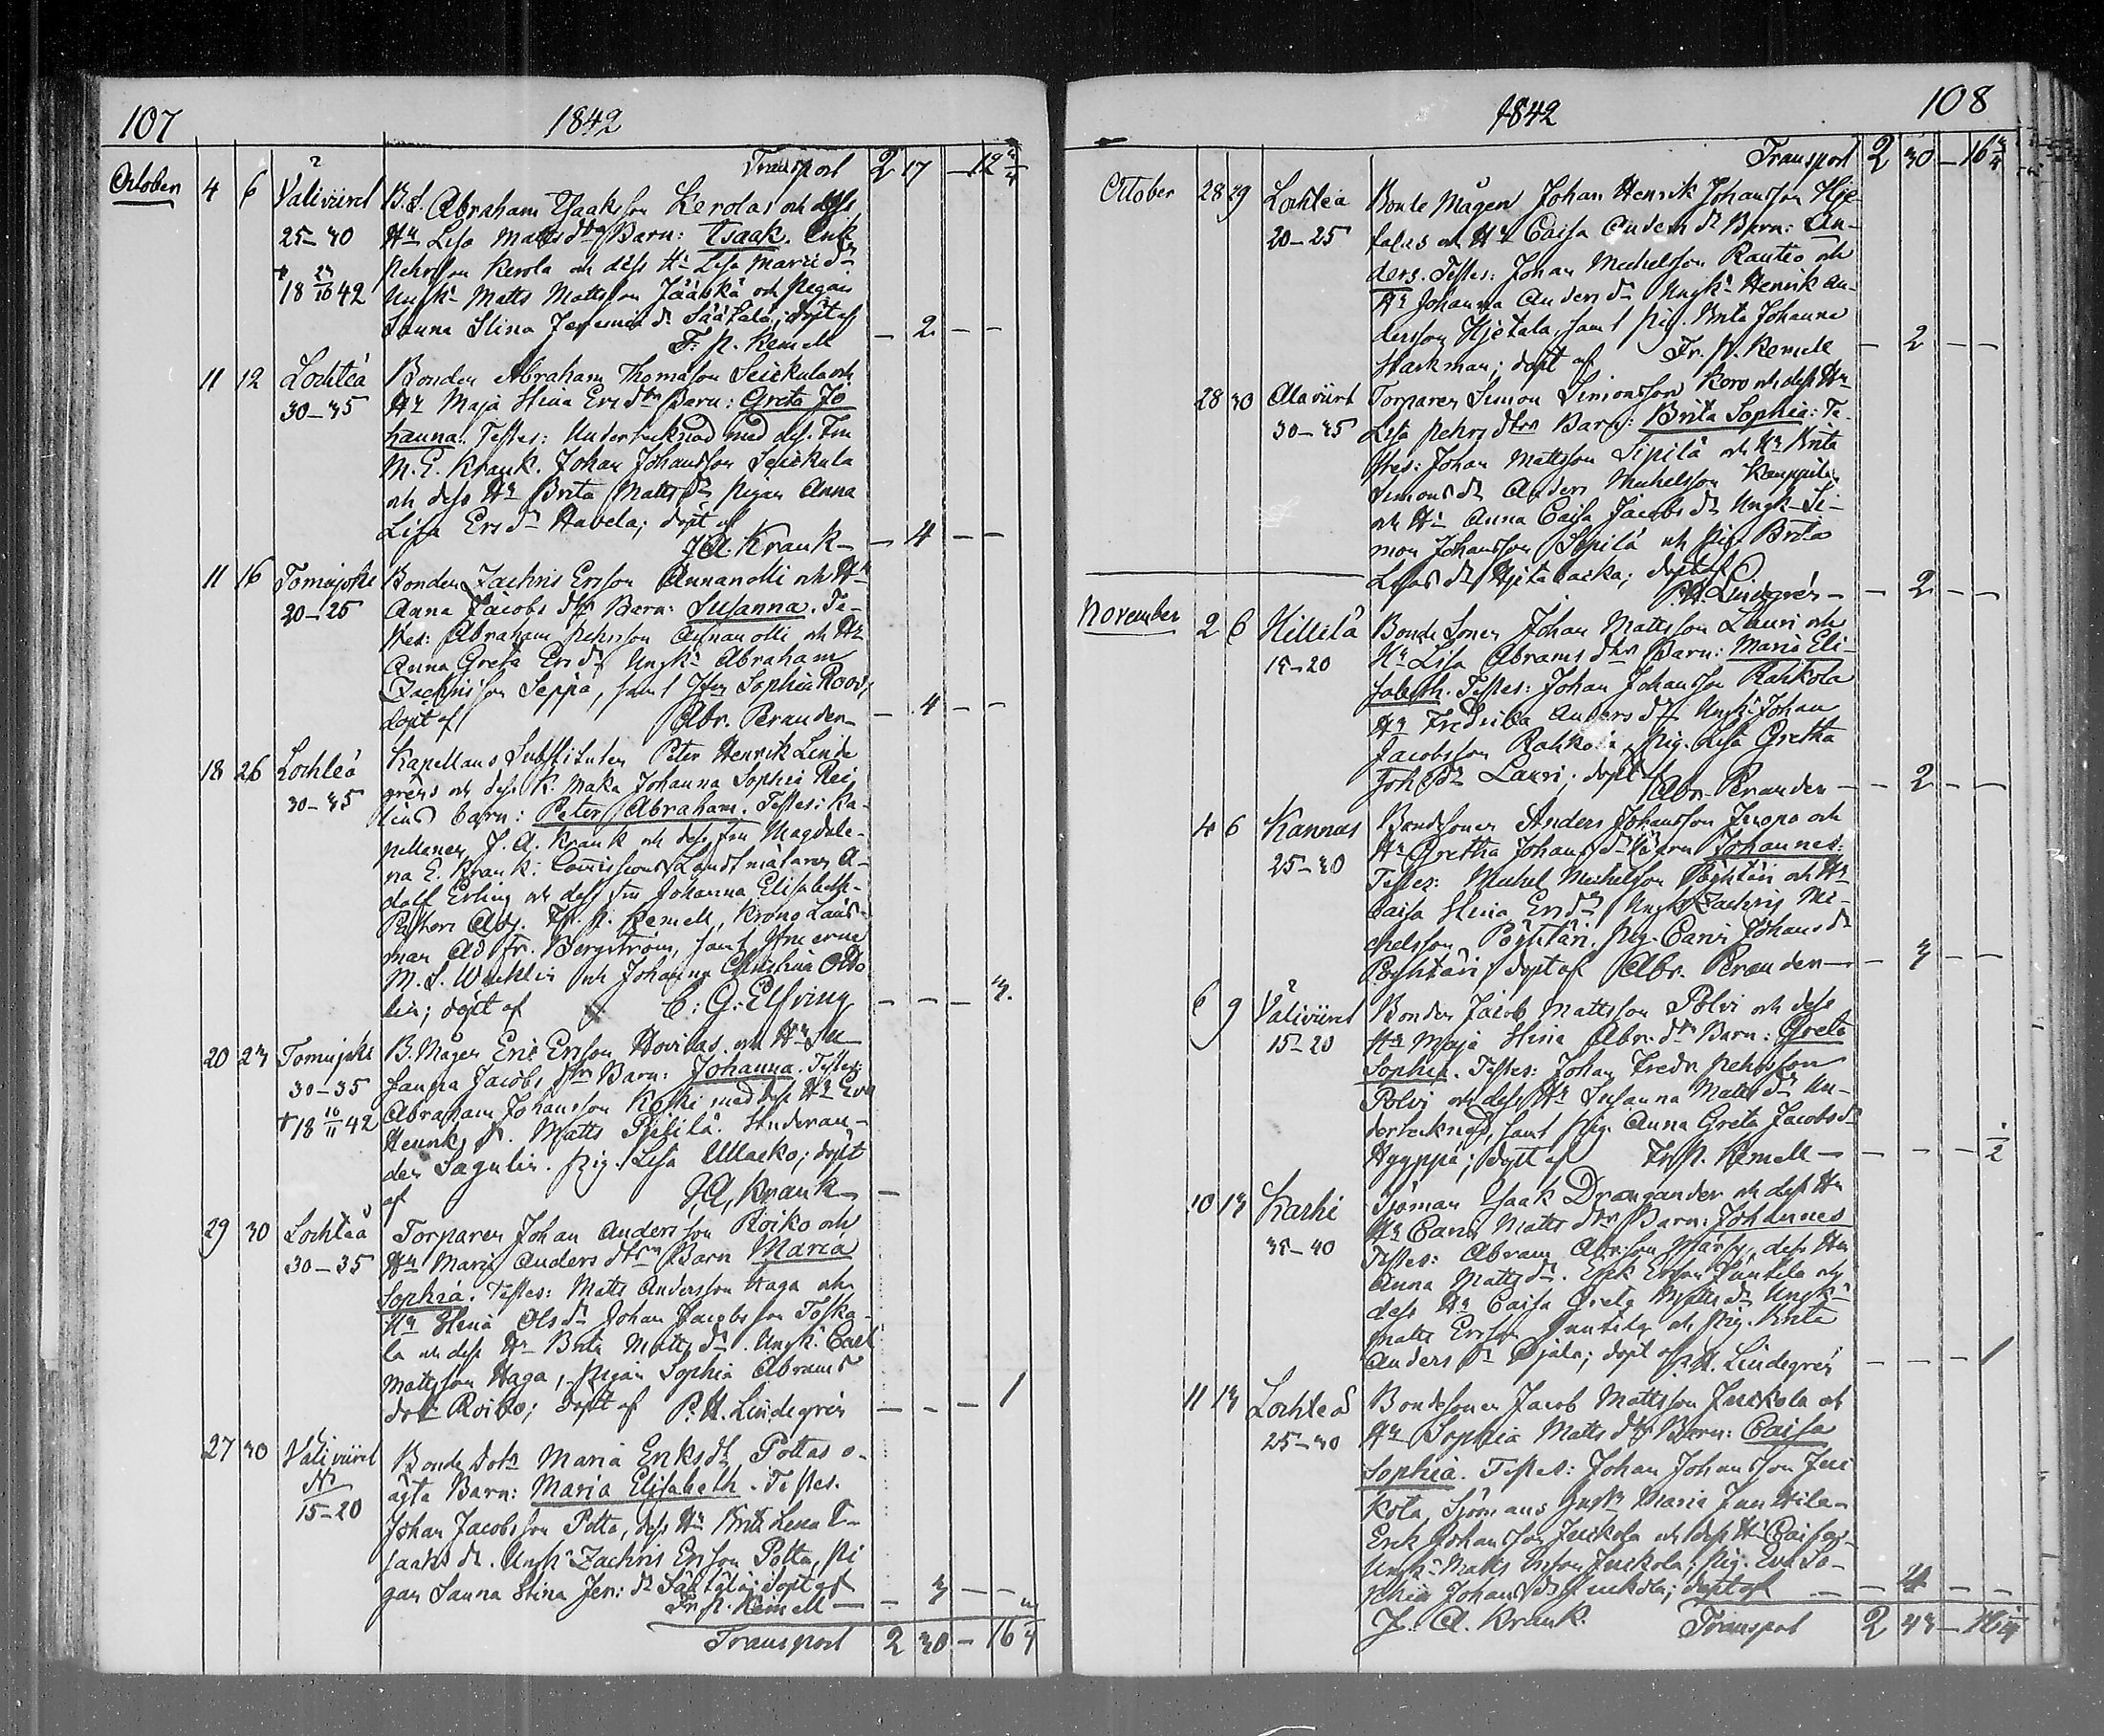 107
1842
Transport 2 17 – 12 3/4
October 4 6 Väliviirret B.S. Abraham Isaaksson Kerolas och dess
25–30 Hu Lisa Mattsdtrs Barn: Isaak. Erik
Pehrsson Kerola och dess Hu Lisa Mariæ dr
+18 23/10 42 Ungk. Matts Mattsson Jääskä och Pigan
Sanna Stina Jeremiæ dr Säätälä; döpt af
F. P. Kemell – 2 – –
11 12 Lochteå Bonden Abraham Thomasson Seikula och
30–35 Hu Maja Stina Ersdtrs Barn: Greta Jo
hanna. Testes: Undertecknad med dess Fru
M. E. Krank. Johan Johansson Seikula
och dess Hu Brita Mattsdr Pigan Anna
Lisa Ersdr Havela; döpt af
J.A. Krank – – 4 – –
11 16 Tomujoki Bonden Zachris Ersson Annanolli och Hu
20–25 Anna Jacobsdtrs Barn: Susanna. Te-
stes: Abraham Pehrsson Annanolli och Hu
Anna Greta Ersdr Ungk. Abraham
Zachrisson Seppä, samt Jfru Sophia Roos;
döpt af Abr. Perander – – 4 – –
18 26 Lochteå Kapellans Substituten Peter Henrik Linde
30–35 gréns och dess K. Maka Johanna Sophia Rei
lins barn: Peter Abraham. Testes: Ka-
pellanen J. A. Krank och dess Fru Magdale-
na E. Krank: Comissions Landtmätaren A-
dolf Erling och dess Fru Johanna Elisabeth-
Pastors Adj. Fr. P. Kemell, Krono Läns-
man Ad. Fr. Bergström, samt Jfruerne
M. S. Wacklin och Johanna Christina Ode
lin; döpt af C. G. Elfving – – – 3.
20 23 Tomujoki B. Mågen Eric Ersson Hovilas och Hu Su
30–35 sanna Jacobsdtrs Barn: Johanna. Testes:
+18 10/11 42 Abraham Johansson Koski med dess Hu Eva
Henriksdr. Matts Pietilä. Studeran-
den Sagulin. Pig. Lisa Ullacko; döpt
af J.A. Krank –
29 30 Lochteå Torparen Johan Andersson Roiko och
30–35 Hu Maria Andersdtrs Barn Maria
Sophia. Testes: Matts Andersson Haga och
Hu Stina Olsdr Johan Jacobsson Toska-
la och dess Hu Brita Mattsdr. Ungk. Carl
Mattsson Haga, Pigan Sophia Abrams
dotr Roiko; döpt af P. H. Lindegrén – – – 1
27 30 Väliviirret Bonde Dotr Maria Eriksdr Pottas o-
15–20 ägta Barn: Maria Elisabeth. Testes.
Johan Jacobsson Potta, dess Hu Brita Lena I-
saaksdr. Ungk. Zachris Ersson Potta, Pi
gan Sanna Stina Jer: dr Säätälä; döpt af
Fr. P. Kemell – – 3 – –
Transport 2 30 – 16 3/4
1842
108
Transport 2 30 – 16 3/4
October 28 29 Lochteå Bonde Mågen Johan Henrik Johansson Hje
20–25 talas och Hu Caisa Andersdr Barn: An-
ders. Testes: Johan Michelsson Rautio och
Hu Johanna Andersdr Ungk. Henrik An-
dersson Hjetala, samt Pig. Brita Johanna
Starkman; döpt af Fr. P. Kemell – 2 – –
28 30 Alaviirret Torparen Simon Simonsson Koro och dess Hu
30–35 Lisa Pehrsdtrs Barn: Brita Sophia: Te-
stes: Johan Mattsson Sipilä och Hu Brita
Simonsdr Anders Michelsson Kauppila
och Hu Anna Caisa Jacobsdr Ungk. Si-
mon Johansson Sipilä och Pig. Brita
döpt af
P.H. Lindegrén – – 2 – –
November 2 6 Hillilä Bonde Sonen Johan Mattsson Lauri och
15–20 Hu Lisa Abramsdtrs Barn: Maria Eli-
sabeth. Testes: Johan Johansson Rahkola
Hu Fredrica Andersdr Ungk. Johan
Jacobsson Rahkola, Pig. Lisa Gretha
Joh. dr Lauri; döpt af Abr. Perander – – 2 – –
4 6 Kannus Bondesonen Anders Johansson Juopo och
25–30 Hu Gretha Johansdr Barn Johannes:
Testes: Michel Michelsson Pöyhtäri och Hu
Caisa Stina Ersdr Ungk. Zachris Mi-
chelsson Pöyhtäri. Pig. Carin Johansdr
Pöyhtäri; döpt af Abr. Perander – – 3 – –
6 9 Väliviirret Bonden Jacob Mattsson Polvi och dess
15–20 Hu Maja Stina Abr. drs Barn: Greta
Sophia. Testes: Johan Fredr. Pehrsson
Polvi och dess Hu Susanna Mattsdr Un-
dertecknad, samt Pig. Anna Greta Jacobsdr
Hyyppä; döpt af Fr. P. Kemell – – – – 1/2
10 13 Karhi Sjöman Isaak Drougander och dess Hu
35–40 Hu Carin Mattsdtrs Barn: Johannes
Testes: Abram Abr:sson dess Hu
Anna Mattsdr. Erik Ersson Junttila och
dess Hu Caisa Greta Mattsdr Ungk.
Matts Ersson Junttila och Pig. Brita
Andersdr Ojala; döpt af P. H. Lindegrén – – – 1
11 13 Lochteå Bondesonen Jacob Mattsson Juckola och
25–30 Hu Sophia Mattsdtrs Barn: Caisa
Sophia. Testes: Johan Johansson Juc
kola, Sjömans Maria
Erik Johansson Juckola och dess Hu Caisa
Ungk. Matts Ersson Juckola; Pig. Eva So-
phia Johansdr Juckola; döpt af – – 4 – –
J. A. Krank. Transport 2 43 –